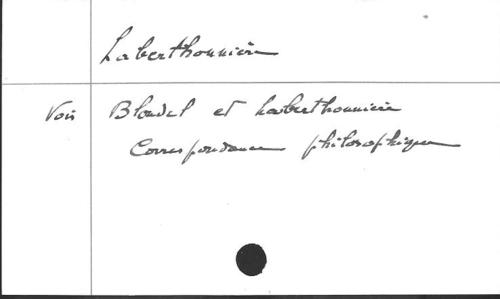 Laberthonnière
Voir Blondel et Laberthonnière
Correspondance philosophique